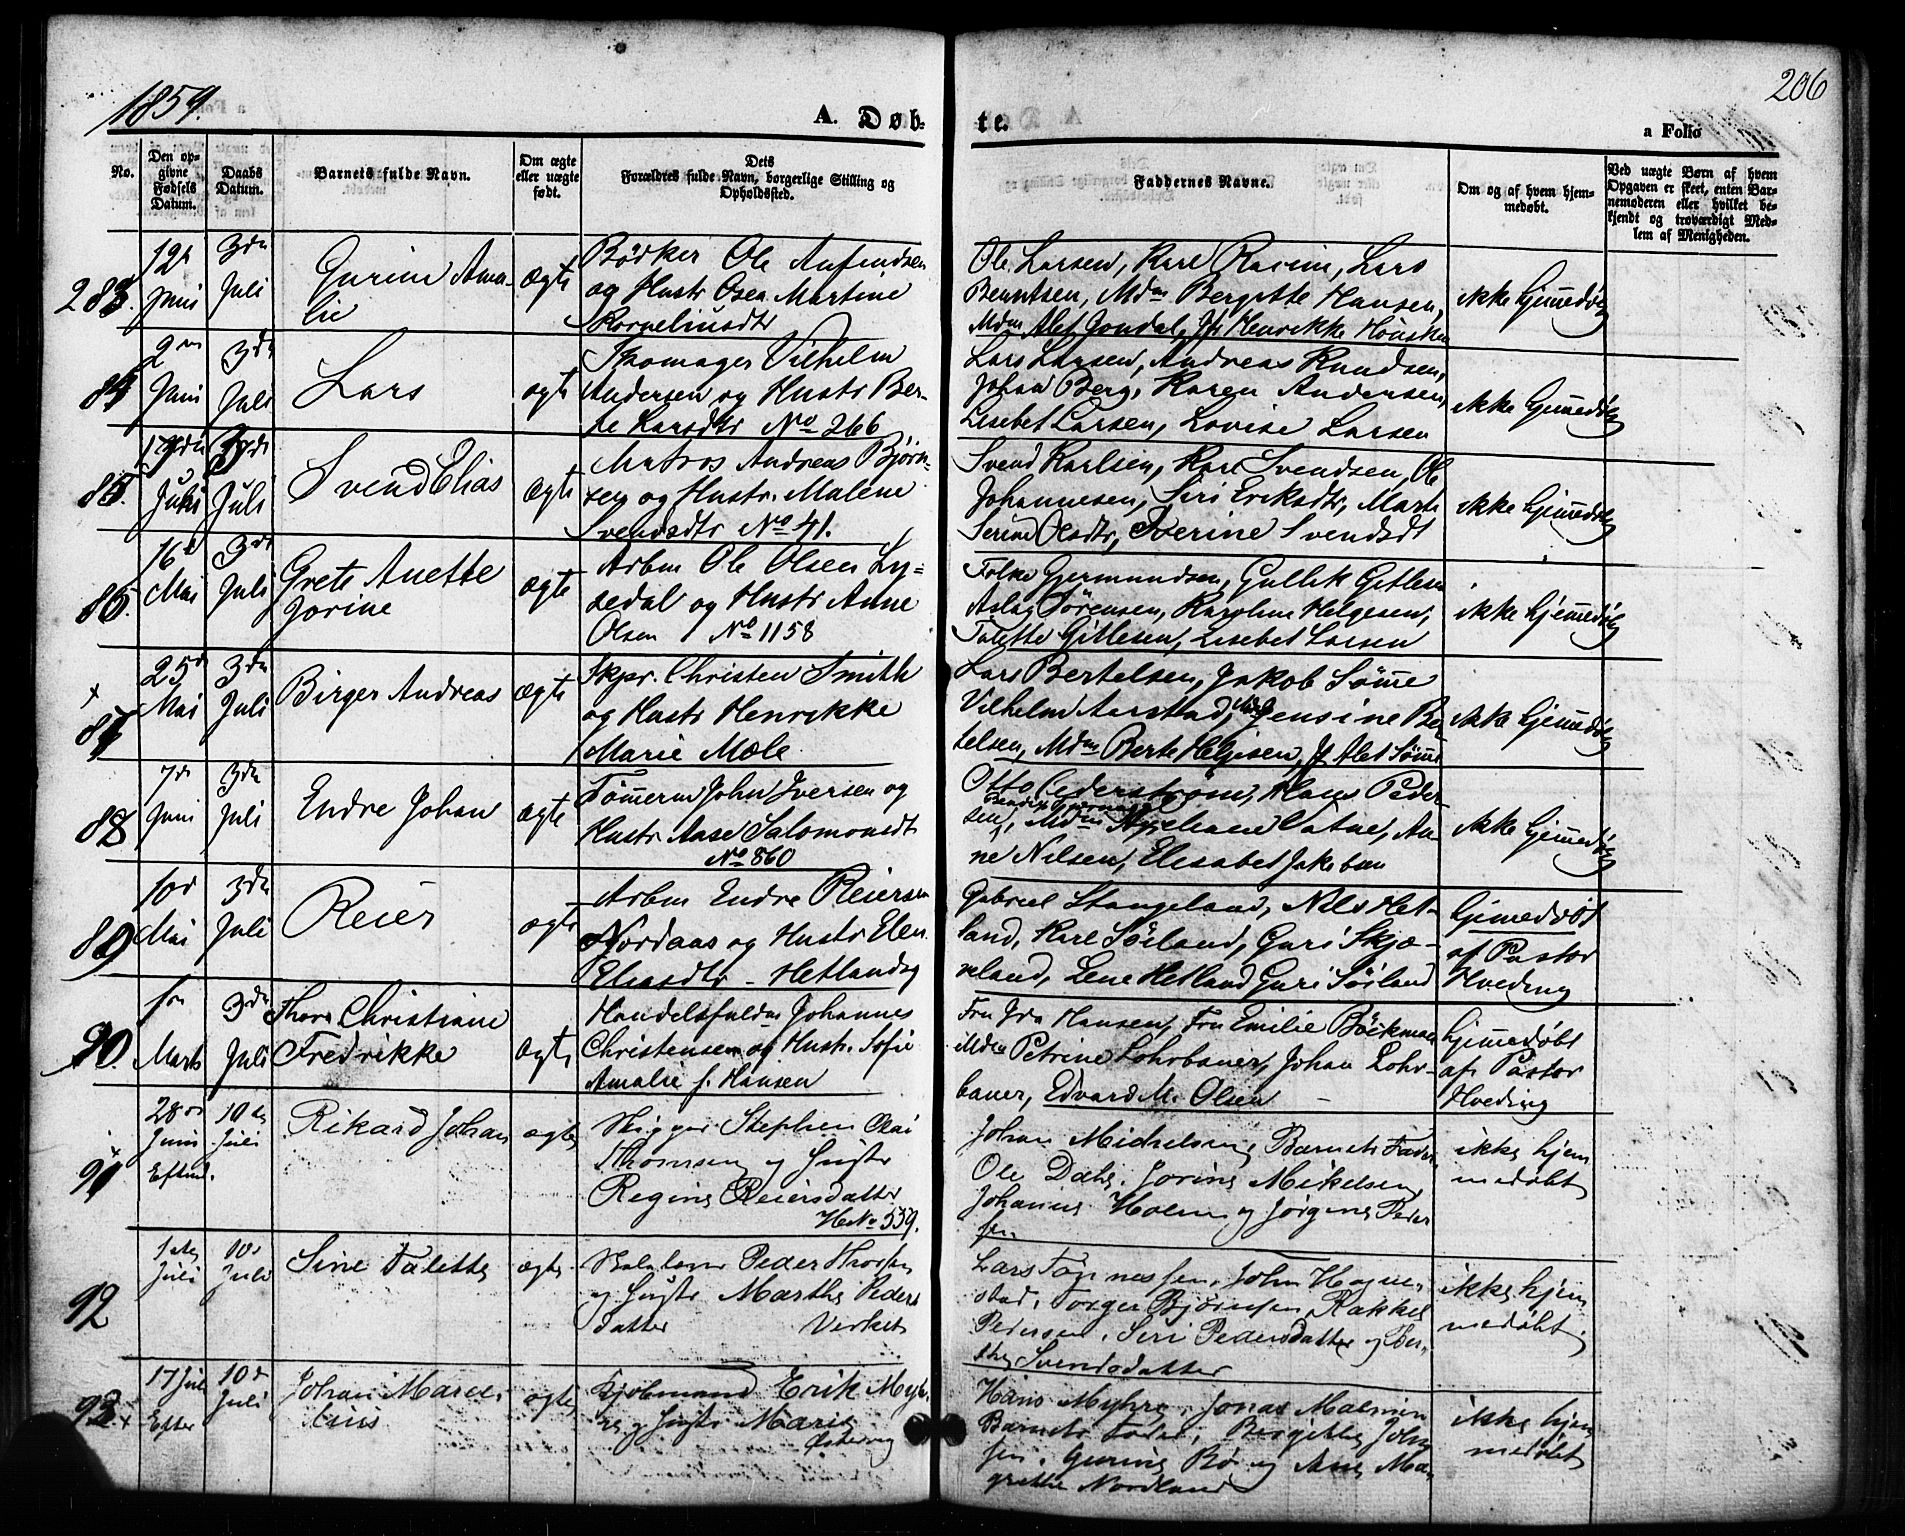 1859.
206
A. Døb-
te.
a Folio
No.
Den op-
givne
Fødsels
Datum.
Daabs
Datum.
Barnets fulde Navn.
Om ægte
eller uægte
født.
Dets
Forældres fulde Navn, borgerlige Stilling og
Opholdssted.
Faddernes Navne.
Om og af hvem hjem-
medøbt.
Ved uægte Børn af hvem
Opgaven er skeet, enten Bar-
nemoderen eller hvilket be-
kjendt og troværdigt Med-
lem af Menigheden.
283.
12te
Juni
3die
Juli
Gurine Ama-
lie
ægte
Bødker Ole Anfindsen
og Hustr Osea Martine
Korneliusdtr
Ole Larsen, Karl Rasim, Lars
Berntsen, Mdm Bergitte Hansen,
Mdm Alet Jondal, Jfr Henrikke
ikke hjemmedøbt
84
2den
Juni
3die
Juli
Lars
ægte
Skomager Vilhelm
Andersen og Hustr Ber-
te Larsdtr No 266
Lars Larsen, Andreas Knudsen,
Johan Berg, Karen Andersen,
Lisebet Larsen, Lovise Larsen
ikke hjemmedøbt
85.
Juni
3die
Juli
Svend Elias
ægte
Matros Andreas Bjørn-
sen og Hustr. Malene
Svendsdtr No 41.
Svend Karlsen, Karl Svendsen, Ole
Johannesen, Siri Eriksdtr, Marte
Serine Olsdtr, Severine Svendsdt
ikke hjemmedøbt
86.
16de
Mai
3die
Juli
Grete Anette
Jorine
ægte
Arbm Ole Olsen Ly-
sedal og Hustr Anne
Olsen No 1158
Folke Gjermundsen, Gullik Gitlesen
Aslag Sørensen, Karoline Helgesen,
Talette Gitlesen, Lisebet Larsen
ikke hjemmedøbt
+
87
25de
Mai
3die
Juli
Birger Andreas
ægte
Skpr. Christen Smith
og Hustr Henrikke
Marie Mæle
Lars Bertelsen, Jakob Sømme
Vilhelm Aarstad, Jensine Ber-
telsen, Mdm Berte Helgesen, Jf Alet Sømme
ikke hjemmedøbt
88
7de
Juni
3die
Juli
Endre Johan
ægte
Tømerm John Iversen og
Hustr Anse Salomonsdt
No 860
Otto Cederstrøm, Hans Peder-
sen, Mdm Catne, An-
ne Nilsen, Elisabet Jakobsen
ikke hjemmedøbt
89
10de
Mai
3die
Juli
Reier
ægte
Arbm Endre Reiersen
Nordaas og Hustr Elen
Eliasdtr - Hetlandsg
Gabriel Stangeland, Nils Het-
land, Karl Søiland, Guri Skjæ-
veland, Lene Hetland Guri Søiland
hjemedøbt
af Pastor
Hveding
90.
1ste
Marts
3die
Juli
Thora Christiane
Fredrikke
ægte
Handelsfuldm Johannes
Christensen og Hustr. Sofie
Amalie f. Hansen
Fru Ida Hansen, Fru Emilie Böckman
Mdm Petrine Lohrbauer, Johan Lohr-
bauer, Edvard M. Olsen -
hjemedøbt
af Pastor
Hveding
+
91
28de
Juni
Efterm.
10de
Juli
Rikard Johan
ægte
Skipper Stephen Oai
Thomsen og Hustru
Regine Reiersdatter
H No 539.
Johan Michelsen, Barnets Fader,
Ole Dahl, Jorine Mikelsen,
Johanne Holm og Jørgine Peder
sen
ikke hjem
medøbt
92
1ste
Juli
10de
Juli
Sine Talette
ægte
Peder Thorsen
og Hustr Marthe Peders
datter Verket
Lars Tønnessen, John Hogne-
stad, Torger Bjørnsen Rakkel
Pedersen, Siri Pedersdatter og Ber-
the Svendsdatter
ikke hjem
medøbt.
93 +
17 Juni
Efter
10de
Juli
Johan Mare-
lius
ægte
Kjøbmand Erik Myh-
re og Hustr Marie
Østervåg
Hans Myhre, Jonas Malmin
Barnets Fader, Bergitte John
sen, Gurine Bø og Ane Ma-
grethe Nordland
ikke hjem
medøbt